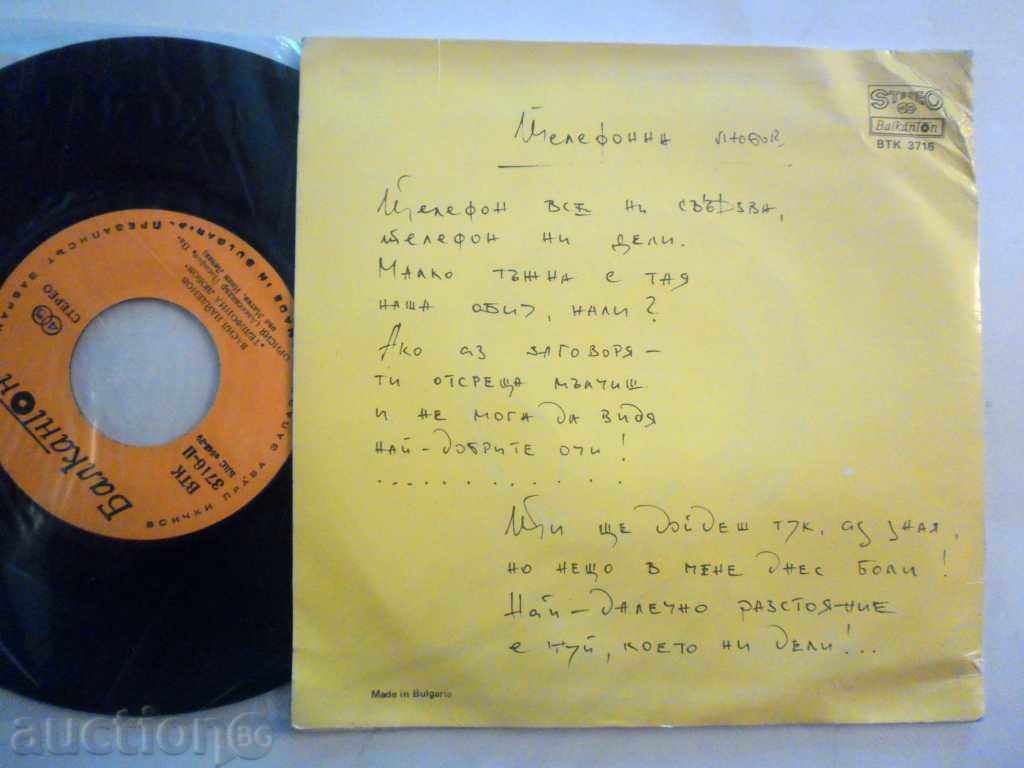 STEREO
Balkanton
BTK 3716
Телефонна любов
Телефон все ни свързва,
телефон ни дели.
Малко тъжна е тая
наша обич, нали?
Ако аз заговоря –
ти отсреща мълчиш
и не мога да видя
най-добрите очи!
. . . . . . . . . . . .
Ти ще дойдеш тук, аз зная,
но нещо в мене днес боли!
Най-далечно разстояние
е туй, което ни дели!...
Made in Bulgaria
Балкантон
ВТК
3716-II
СТЕРЕО
ВАСИЛ НАЙДЕНОВ
"ТЕЛЕФОННА ЛЮБОВ"
ВСИЧКИ ПРАВА
auctionBG